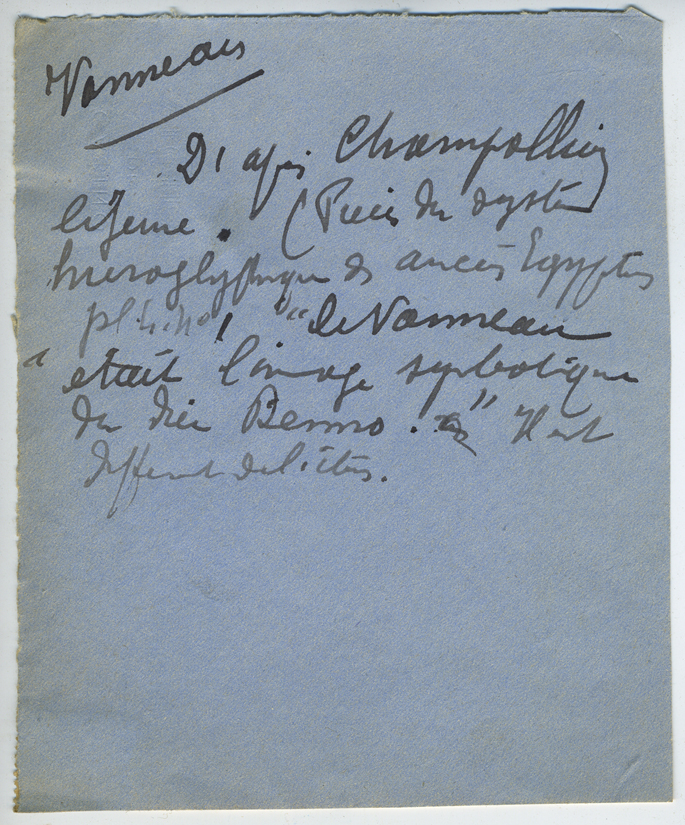 Vanneau
D'après Champollion
le Jeune. (Précis du système
hiéroglyphique des anciens Egyptiens
"le Vanneau
était l'image symbolique
du dieu Benno." Il est
différent de l'ibis.